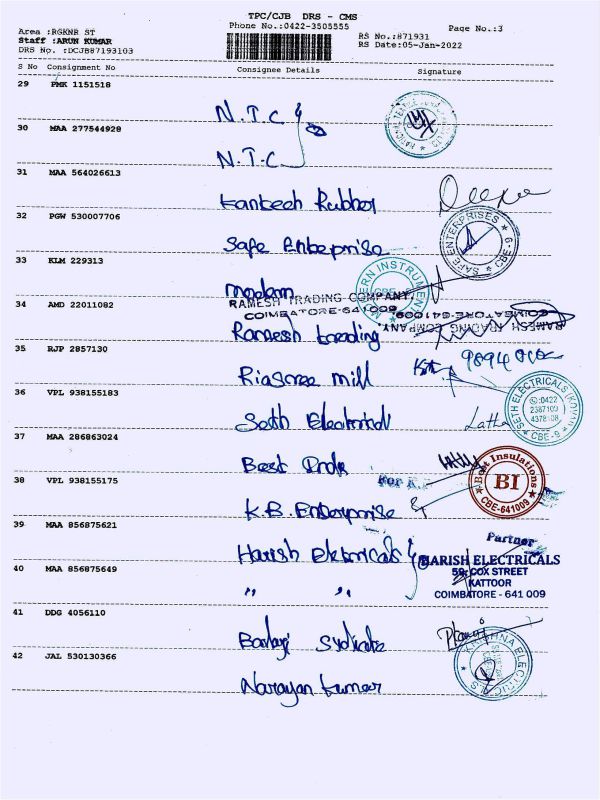 TPC/CJB DRS - CMS
Phone No.:0422-3505555
Page No.:3
Area :RGKNR ST
Staff :ARUN KUMAR
DRS No. :DCJB87193103
RS No.:871931
RS Date:05-Jan-2022
S No Consignment No Consignee Details Signature
29 PMK 1151518
N.T.C
30 MAA 277544928
N.T.C
31 MAA 564026613
Rubber
32 PGW 530007706
Safe Enterprise
SAFE ENTERPRISES CBE-9
33 KLM 229313
Modern
RAMESH TRADING COMPANY.
COIMBATORE-641009.
RAMESH TRADING COMPANY
COIMBATORE-641009.
34 AMD 22011082
Ramesh trading
35 RJP 2857130
Mill
9894
36 VPL 938155183
Seth Electrical
Latha
SETH ELECTRICALS
✆:0422
2387109
4378108
CBE-9
37 MAA 286863024
Best
Best Insulations
BI
CBE-641009
38 VPL 938155175
For K.
K.B. Enterprise
Partner
39 MAA 856875621
Harish Electricals
HARISH ELECTRICALS
59, COX STREET
KATTOOR
COIMBATORE - 641 009
40 MAA 856875649
" "
41 DDG 4056110
42 JAL 530130366
Narayan kumar